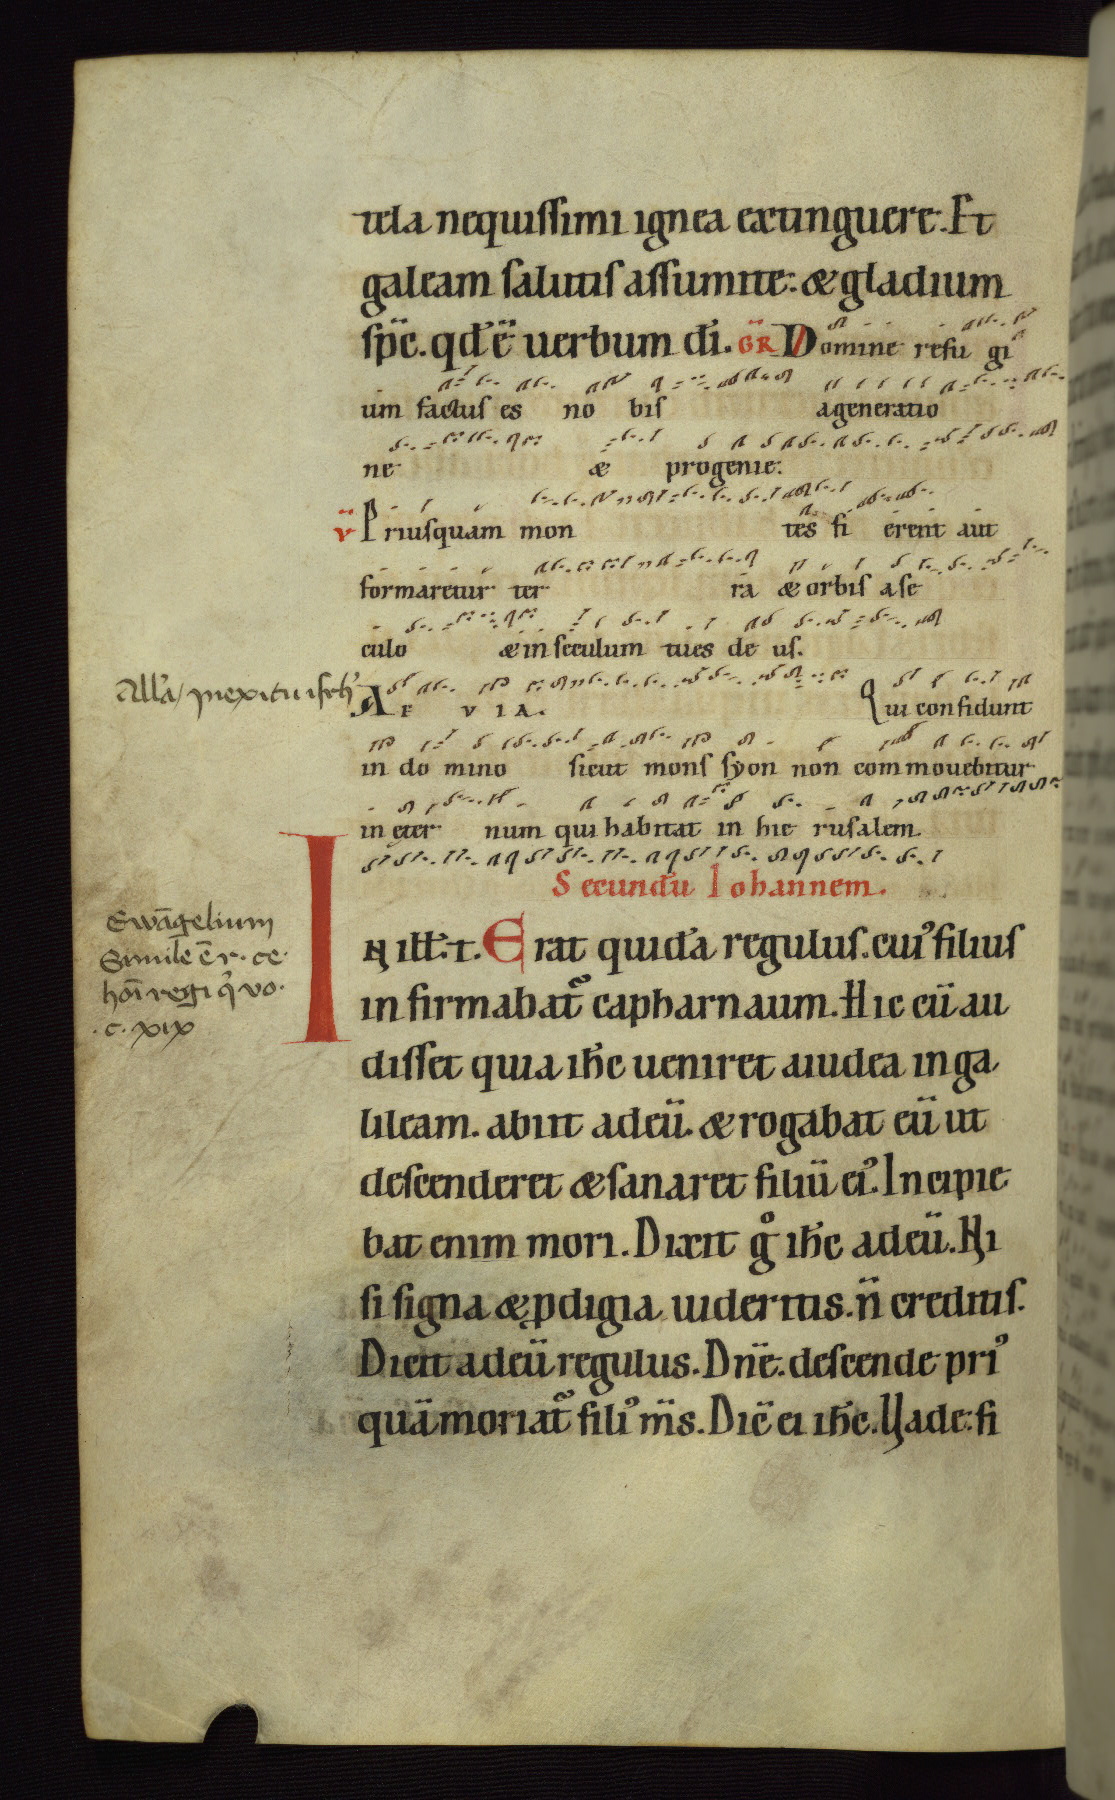 tela nequissimi ignea extinguere. Et
galeam salutis assumite: & gladium
sp̄c. qđ ē uerbum dī. GR̄ Domine refu gi
um factus es no bis a generatio
ne & progenie.
v̄ Priusquam mon tes fi erent aut
formaretur ter ra & orbis a se
culo & in seculum tu es de us.
All'a / in exitu isrl'
AE VIA. Qui confidunt
in do mino sicut mons syon non commouebitur
in eter num qui habitat in hie rusalem.
Secundū Iohannem.
IN ill'. t. Erat quidā regulus. cui' filius
infirmabat' capharnaum. Hic cū au
disset quia ih̄c ueniret a iudea in ga
lileam. abiit ad eū. & rogabat eū ut
descenderet & sanaret filiū ei'. Incipie
bat enim mori. Dixit g° ih̄c ad eū. Ni
si signa & pdigia uideritis. n̄ creditis.
Dicit ad eū regulus. Dn̄e. descende pri'
quā moriat' fili' m̄s. Dic̄ ei ih̄c. Vade. fi
Ewāgelium
Simile ē r. ce.
hoī regi q' vo.
.c. xix